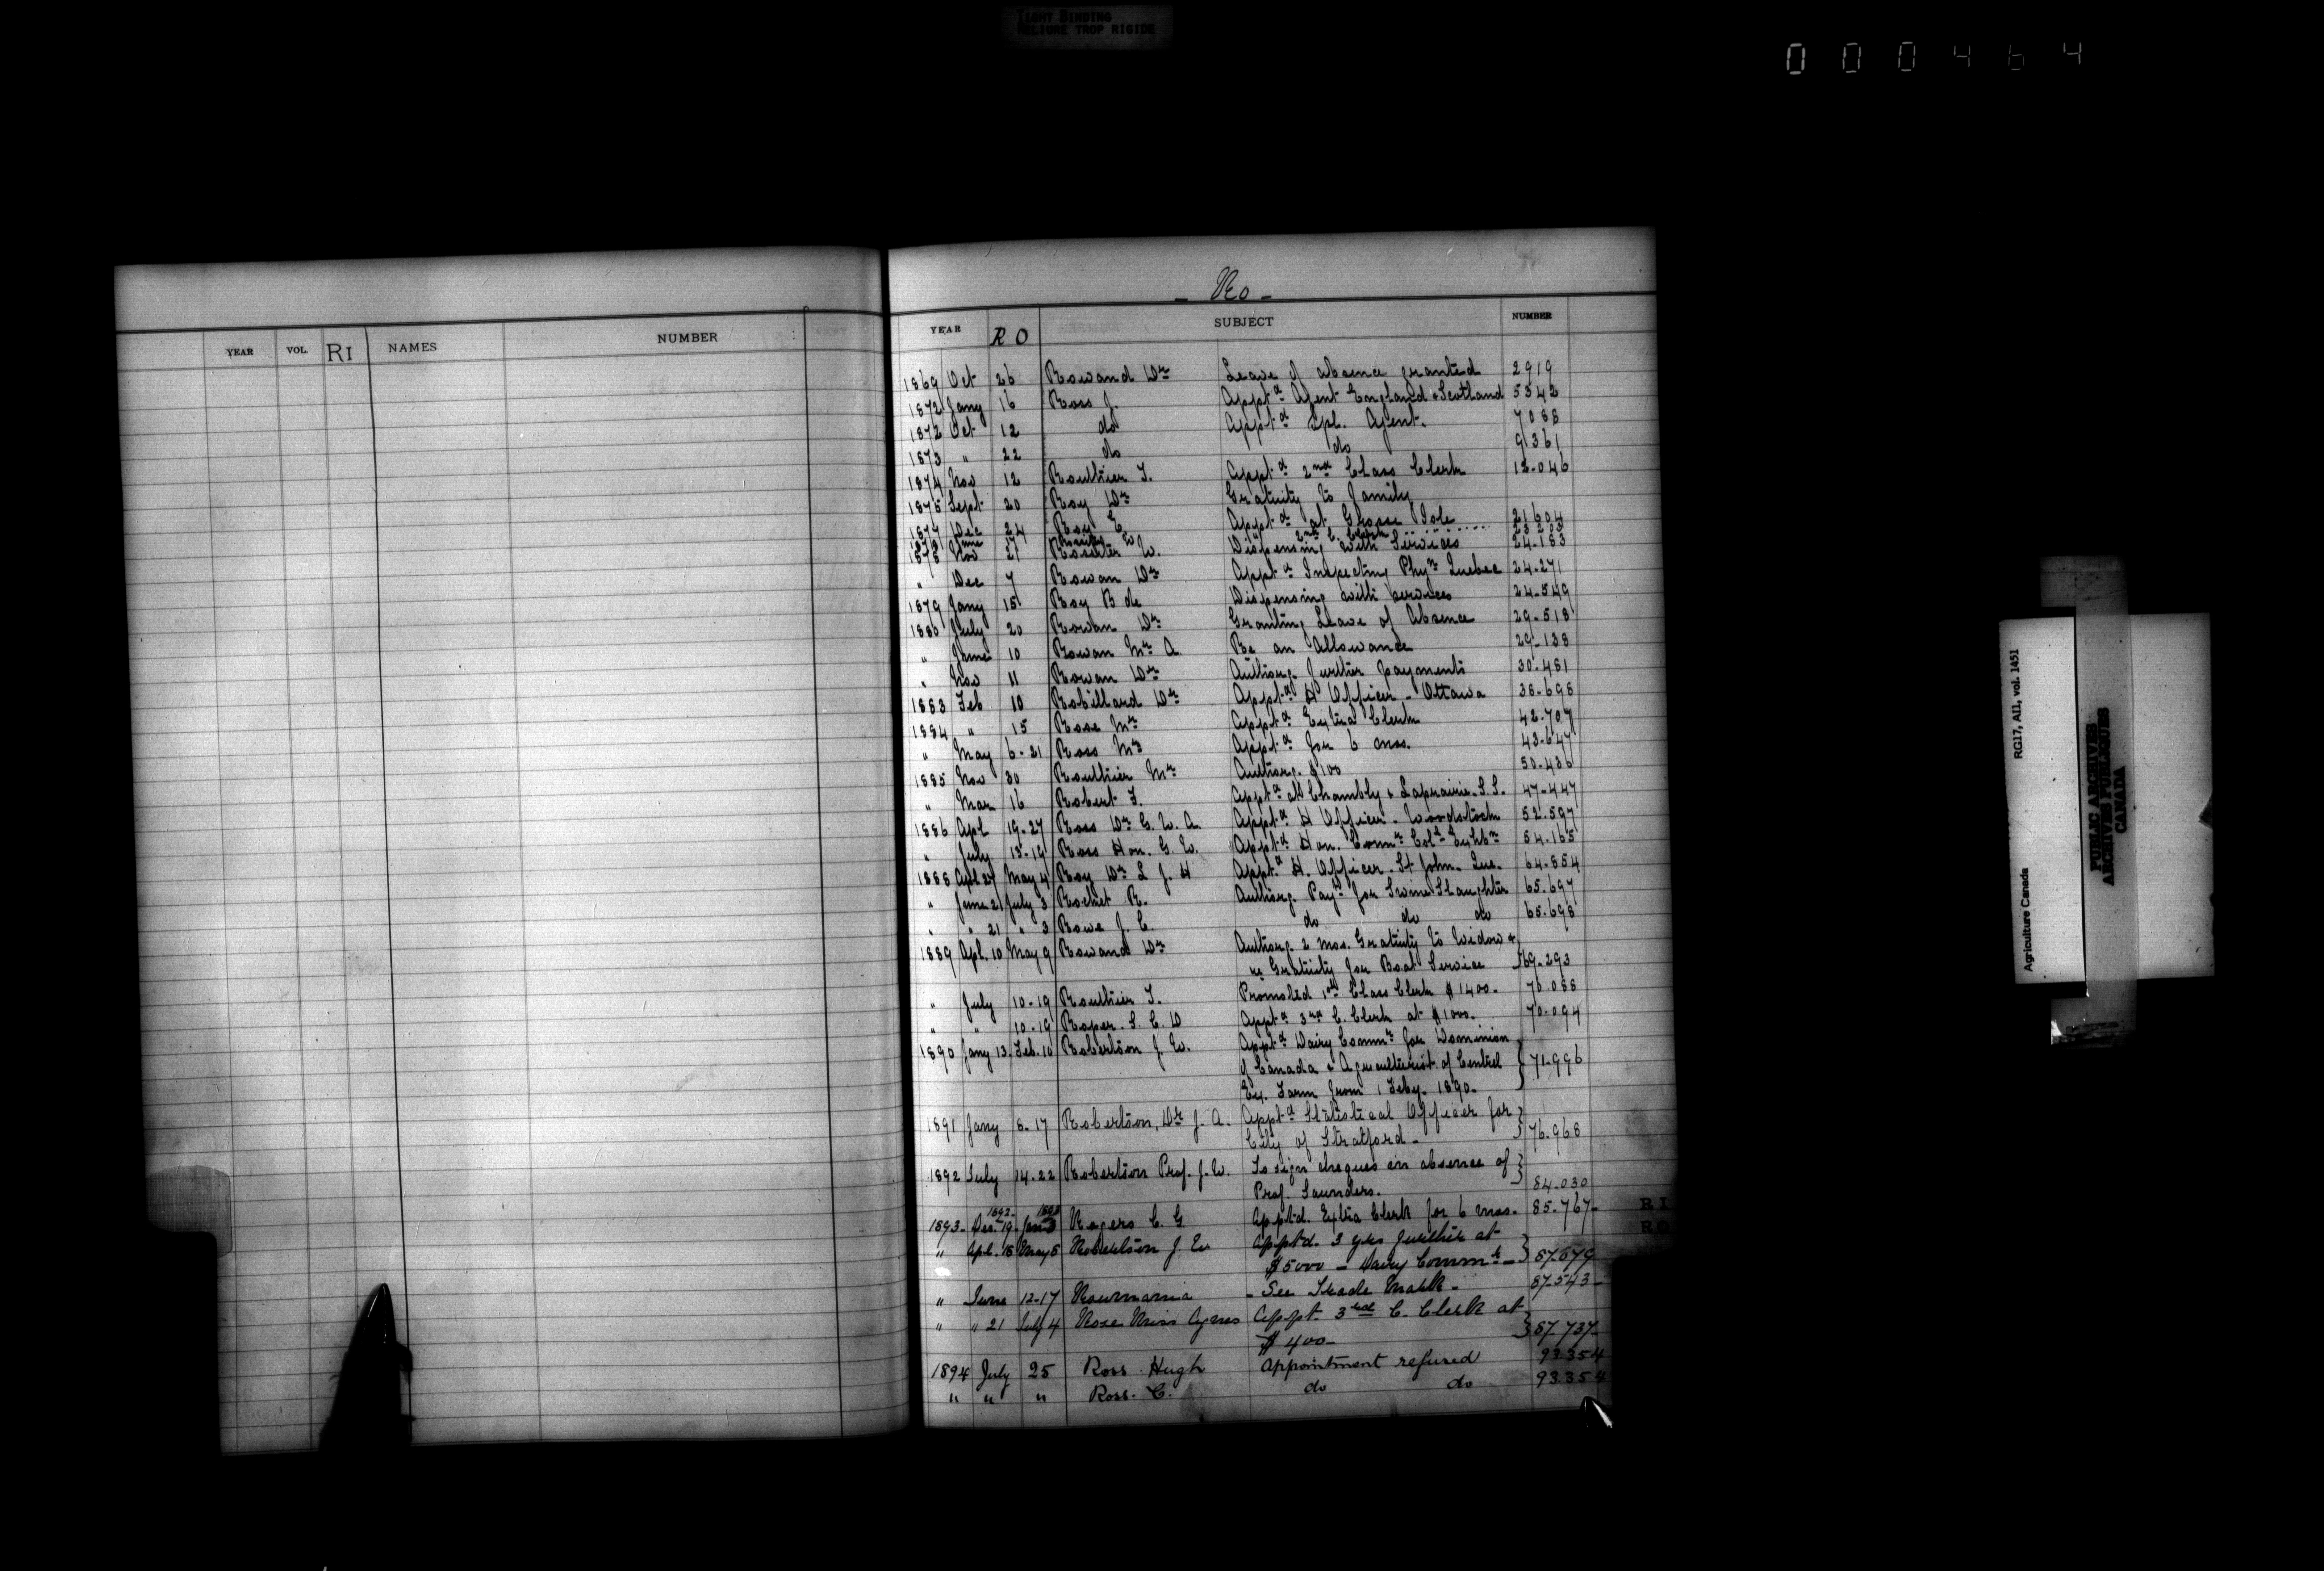 TIGHT BINDING
RELIURE TROP RIGIDE
000464
YEAR VOL. RI NAMES NUMBER
- Ro -
YEAR RO SUBJECT NUMBER
1869 Oct 26 Rowand Dr Leave of absence granted 2919
1872 Jany 16 Ross J. Apptd Agent England & Scotland 5342
1872 Oct 12 do Apptd Spl. Agent. 7088
1873 " 22 do do 9361
1874 Nov 12 Routhier T. Apptd 2nd Class Clerk 12.046
1875 Sept 20 Roy Dr Gratuity to family
1877 Dec 24 Roy E. Apptd at Grosse Isle 21604
1878 June 2nd C. Clerk
1878 Nov 21 W. Dispensing with Services 24.183
" Dec 7 Rowan Dr Apptd Inspecting Phyn Quebec 24-271
1879 Jany 15 Roy B de Dispensing with services 24-549
1880 July 20 Rowan Dr Granting Leave of Absence 29-518
" June 10 Rowan Mr A. Re an Allowance 29-138
" Nov 11 Rowan Dr Authorg. further payments 30-481
1883 Feb 10 Robillard Dr Apptd H Officer - Ottawa 38-698
1884 " 15 Rose Mr Apptd Extra Clerk 42.707
" May 6-21 Ross Mr Apptd for 6 mos. 43-647
1885 Nov 30 Routhier Mr Authorg. $100 50-436
" Mar 16 Robert F. Apptd at Chambly & Laprairie. S.S. 47-447
1886 Apl 19-27 Ross Dr G. W. A. Apptd H Officer - Woodstock 52.597
" July 13-19 Ross Hon. G. W. Apptd Hon. Commr Coll Exhbn 54.165
1888 Apl 27 May 4 Roy Dr L J. H Apptd H. Officer. St John. Que. 64-854
" June 21 July 3 R. Authorg. Payt for Swine Slaughter 65.697
" " 21 " 3 Rowe J. C. do do do 65.698
1889 Apl. 10 May 9 Rowand Dr Authorg. 2 mos. Gratuity to Widow &
re Gratuity for Boat Service 69-293
" July 10-19 Routhier T. Promoted 1st Class Clerk $1400. 70.088
" " 10-19 Roper. S. C. D Apptd 3rd C. Clerk at $1000. 70-094
1890 Jany 13. Feb. 10 Robertson J. W. Apptd Dairy Commr for Dominion
of Canada & Agriculturist of Central 71-996
Ex. Farm from 1 Feby. 1890.
1891 Jany 8-17 Robertson, Dr J. A. Apptd Statistical Officer for
City of Stratford - 76.968
1892 July 14-22 Robertson Prof. J. W. To sign cheques in absence of
Prof. Saunders. 84.030
1893- Dec. 19- Jan 3 Rogers C. G. Apptd. Extra Clerk for 6 mos. 85.767-
" Apl. 18 May 8 Robertson J. W Apptd. 3 yrs further at
$5000 - Dairy Commr - 87.079
" June 12-17 Roumania - See Trade Mark - 87-543-
" " 21 July 4 Rose Miss Agnes Appt. 3rd C. Clerk at
$400- 87.737-
1894 July 25 Ross Hugh Appointment refused 93.354
" " " Ross. C. do do 93.354
RI
RO
Agriculture Canada RG17, AII, vol. 1451
PUBLIC ARCHIVES
ARCHIVES PUBLIQUES
CANADA